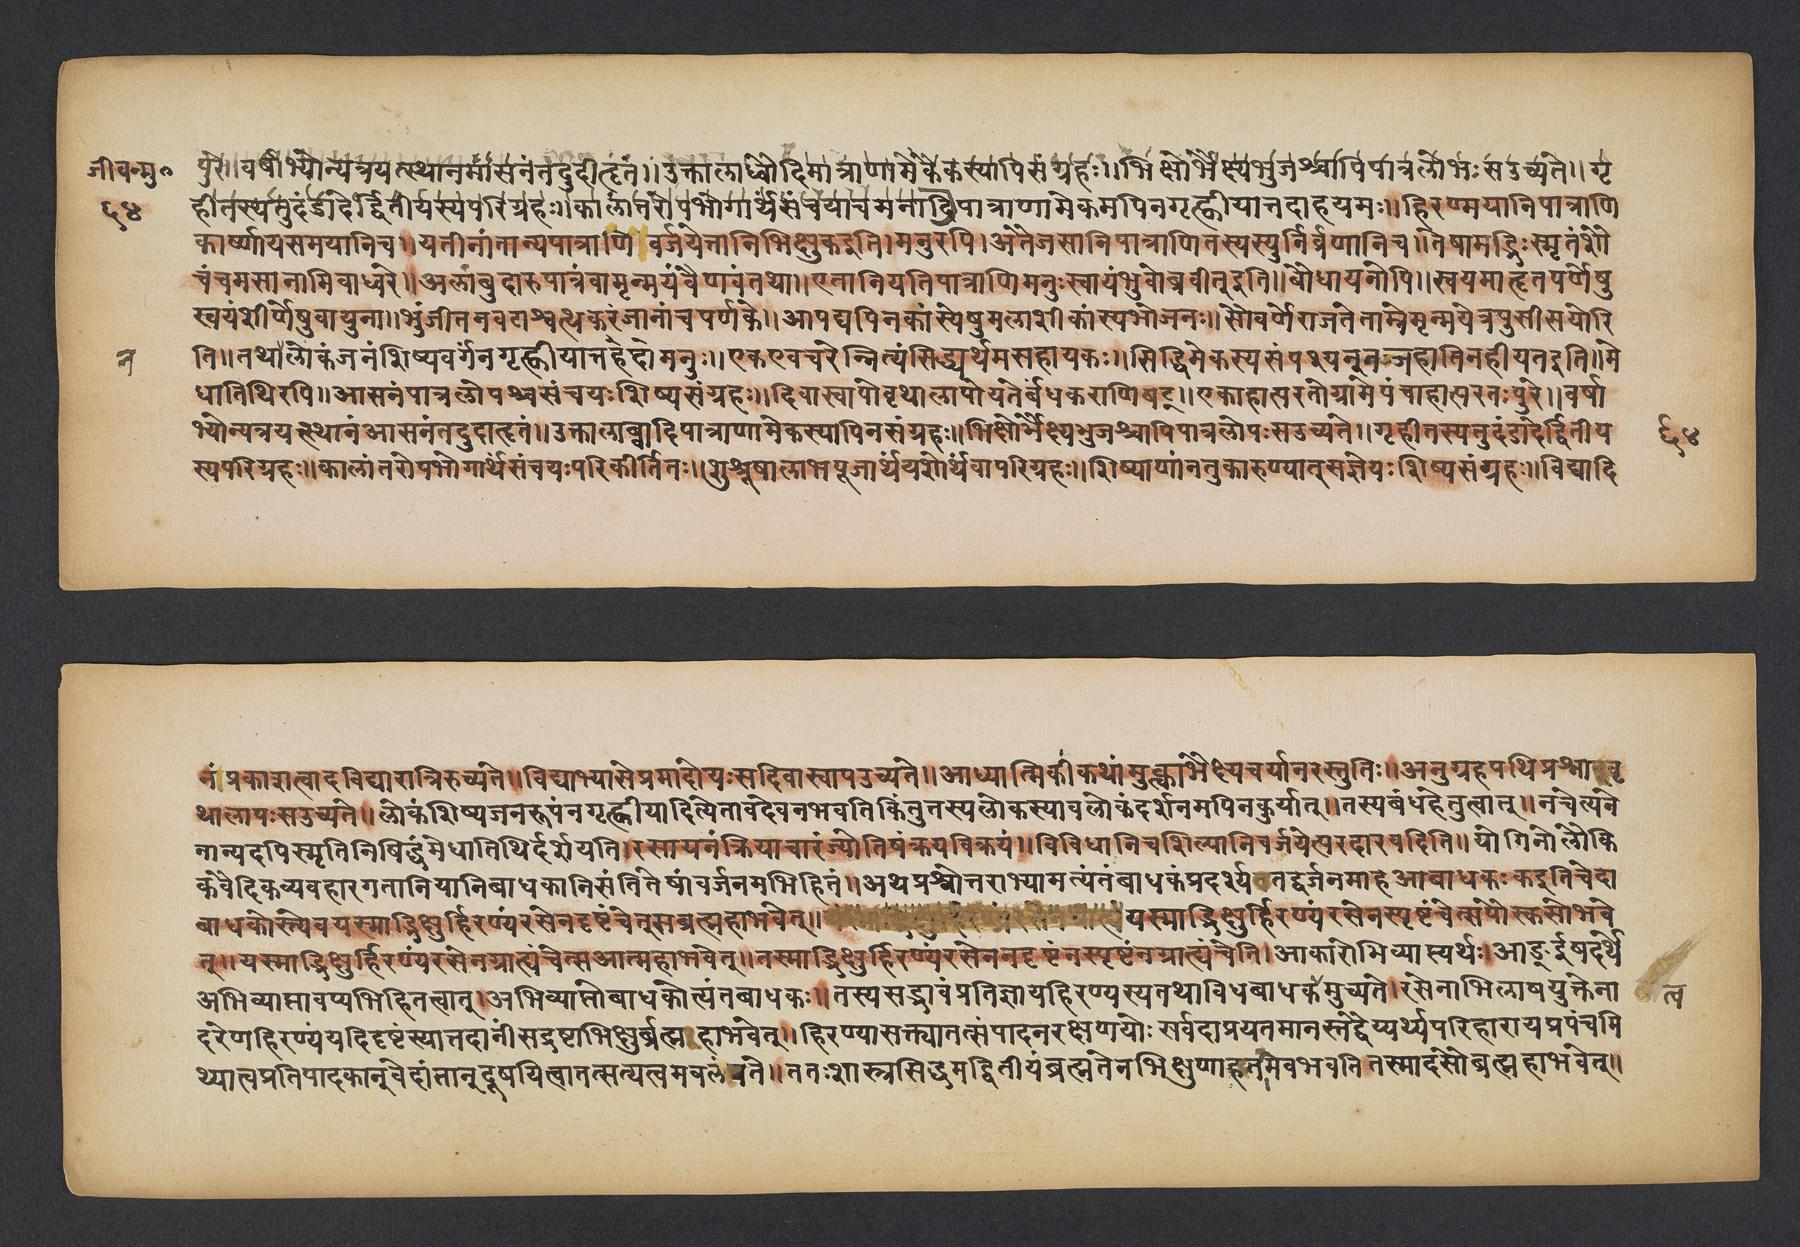 जीवन्मु०
६४
पुरे॥वर्षाभ्योन्यत्रयत्स्थानमासनंतदुदीहृतं॥उक्तालाब्वादिमात्राणामेकैकस्यापिसंग्रहः॥भिक्षोर्भैक्ष्यभुजश्चापिपात्रलोभःसउच्यते॥गृ
हीतस्यतुदंडादेर्द्वितीयस्यपरिग्रहः॥कालांतरोपभोगार्थंसंचयाचमनाद्रिपात्राणामेकमपिनगृह्णीयात्तदाहयमः॥हिरण्मयानिपात्राणि
कार्ष्णायसमयानिच॥यतीनांतान्यपात्राणि वर्जयेत्तानिभिक्षुकइति।मनुरपि।अतेजसानिपात्राणितस्यस्युर्निर्व्रणानिच॥तेषामद्भिःस्मृतंशौ
चंचमसानामिवाध्वरे॥अलाबुदारुपात्रंवामृन्मयंवैणवंतथा॥एतानियतिपात्राणिमनुःस्वायंभुवोब्रवीत्इति॥बोधायनोपि॥स्वयमाहृतपर्णेषु
स्वयंशीर्णेषुवायुना॥भुंजीतनवटाश्वत्थकरंजानांचपर्णके॥आपद्यपिनकांस्येषुमलाशीकांस्यभोजनः॥सौवर्णेराजतेताम्रेमृन्मयेत्रपुसीसयोरि
ति॥तथालोकंजनंशिष्यवर्गंनगृह्णीयात्तहेदामनुः॥एकएवचरेन्नित्यंसिद्ध्यर्थमसहायकः॥सिद्धिमेकस्यसंपश्यन्नजहातिनहीयतइति॥मे
त्र
धातिथिरपि॥आसनंपात्रलोपश्चसंचयःशिष्यसंग्रहः॥दिवास्वापोवृथालापोयतेर्बंधकराणिषट्॥एकाहात्परतोग्रामेपंचाहात्परतःपुरे॥वर्षा
भ्योन्यत्रयत्स्थानंआसनंतदुदाहृतं॥उक्तालाब्वादिपात्राणामेकस्यापिनसंग्रहः॥भिक्षोर्भैक्ष्यभुजश्चापिपात्रलोपःसउच्यते॥गृहीतस्यतुदंडादेर्द्वितीय
६४
स्यपरिग्रहः॥कालांतरोपभोगार्थंसंचयःपरिकीर्तितः॥शुश्रूषालाभपूजार्थंयशोर्थंवापरिग्रहः॥शिष्याणांनतुकारुण्यात्सज्ञेयःशिष्यसंग्रहः॥विद्यादि
नंप्रकाशत्वादविद्यारात्रिरुच्यते॥विद्याभ्यासेप्रमादोयःसदिवास्वापउच्यते॥आध्यात्मिकींकथांमुत्क्त्वाभैक्ष्यचर्यानरस्तुतिः॥अनुग्रहपथिप्रश्नावृ
थालापःसउच्यते॥लोकंशिष्यजनरूपंनगृह्णीयादित्येतावदेवनभवतिकिंतुतस्यलोकस्यावलोकंदर्शनमपिनकुर्यात्॥तस्यबंधहेतुत्वात्॥नचेत्यने
नान्यदपिस्मृतिनिषिद्धंमेधातिथिर्दर्शयति।रसायनंक्रियाचारंज्योतिषंक्रयविक्रयं॥विविधानिचशिल्पानिवर्जयेत्परदारवदिति॥योगिनोलौकि
कंवैदिकव्यवहारगतानियानिबाधकानिसंतितेषांवर्जनमभिहितं॥अथप्रश्नोत्तराभ्यामत्यंतंबाधकंप्रदर्श्यतद्वर्जनमाहआबाधकःकइतिचेदा
बाधकोस्त्येवयस्माद्भिक्षुर्हिरण्यंरसेनदृष्टंचेत्सब्रह्महाभवेत्॥यस्माद्भिक्षुर्हिरण्यंरसेनस्पृष्टंचेत्सपौल्कसोभवे
त्॥यस्माद्भिक्षुर्हिरण्यंरसेनग्राह्यंचेत्सआत्महाभवेत्॥तस्माद्भिक्षुर्हिरण्यंरसेननदृष्टंनस्पृष्टंनग्राह्यंचेति।आकारोभिव्याप्त्यर्थः।आङ्ईषदर्थे
अभिव्याप्तावप्यभिहितत्वात्।अभिव्याप्तोबाधकोत्यंतबाधकः॥तस्यसद्भावंप्रतिज्ञायहिरण्यस्यतथाविधबाधकमुच्यते।रसेनाभिलाषयुक्तेना
त्व
दरेणहिरण्यंयदिदृष्टंस्यात्तदानींसद्रष्टाभिक्षुर्ब्रह्महाभवेत्॥हिरण्यासक्त्यातत्संपादनरक्षणयोःसर्वदाप्रयतमानस्तद्वैय्यर्थ्यपरिहारायप्रपंचमि
थ्यात्वप्रतिपादकान्वेदांतान्दूषयित्वातत्सत्यत्वमवलंबते॥ततःशास्त्रसिद्धमद्वितीयंब्रह्मतेनभिक्षुणाहतमेवभवतितस्मादसौब्रह्महाभवेत्॥